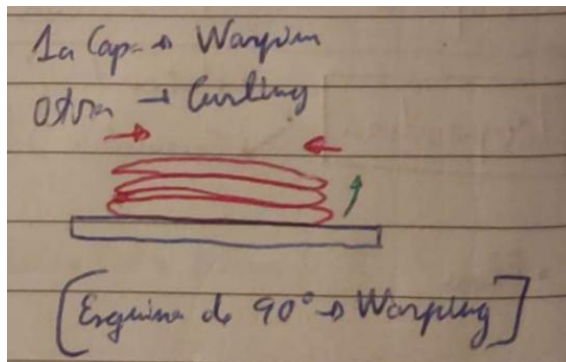 1a Capa → Warpin
Otra → Curling
[Esquina de 90° → Warping]